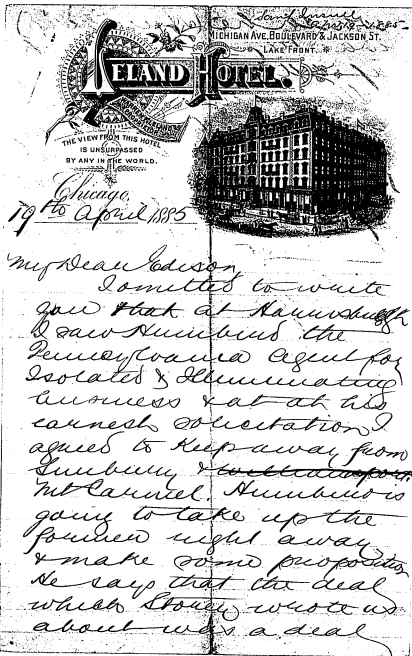 Saml Insull
April 19-1885-
MICHIGAN AVE. BOULEVARD & JACKSON ST.
LAKE FRONT.
LELAND HOTEL.
THE VIEW FROM THIS HOTEL
IS UNSURPASSED
BY ANY IN THE WORLD.
Chicago,
19th April 1885
My Dear Edison,
I omitted to write
you that at Harrisburgh
I saw Humbird the
Pennsylvania Agent for
Isolated & Illuminating
business & at at his
earnest solicitation I
agreed to Keep away from
Sunbury & Williamsport
Mt Carmel. Humbird is
going to take up the
former right away
& make some proposition
He says that the deal
which Storey wrote us
about was a deal